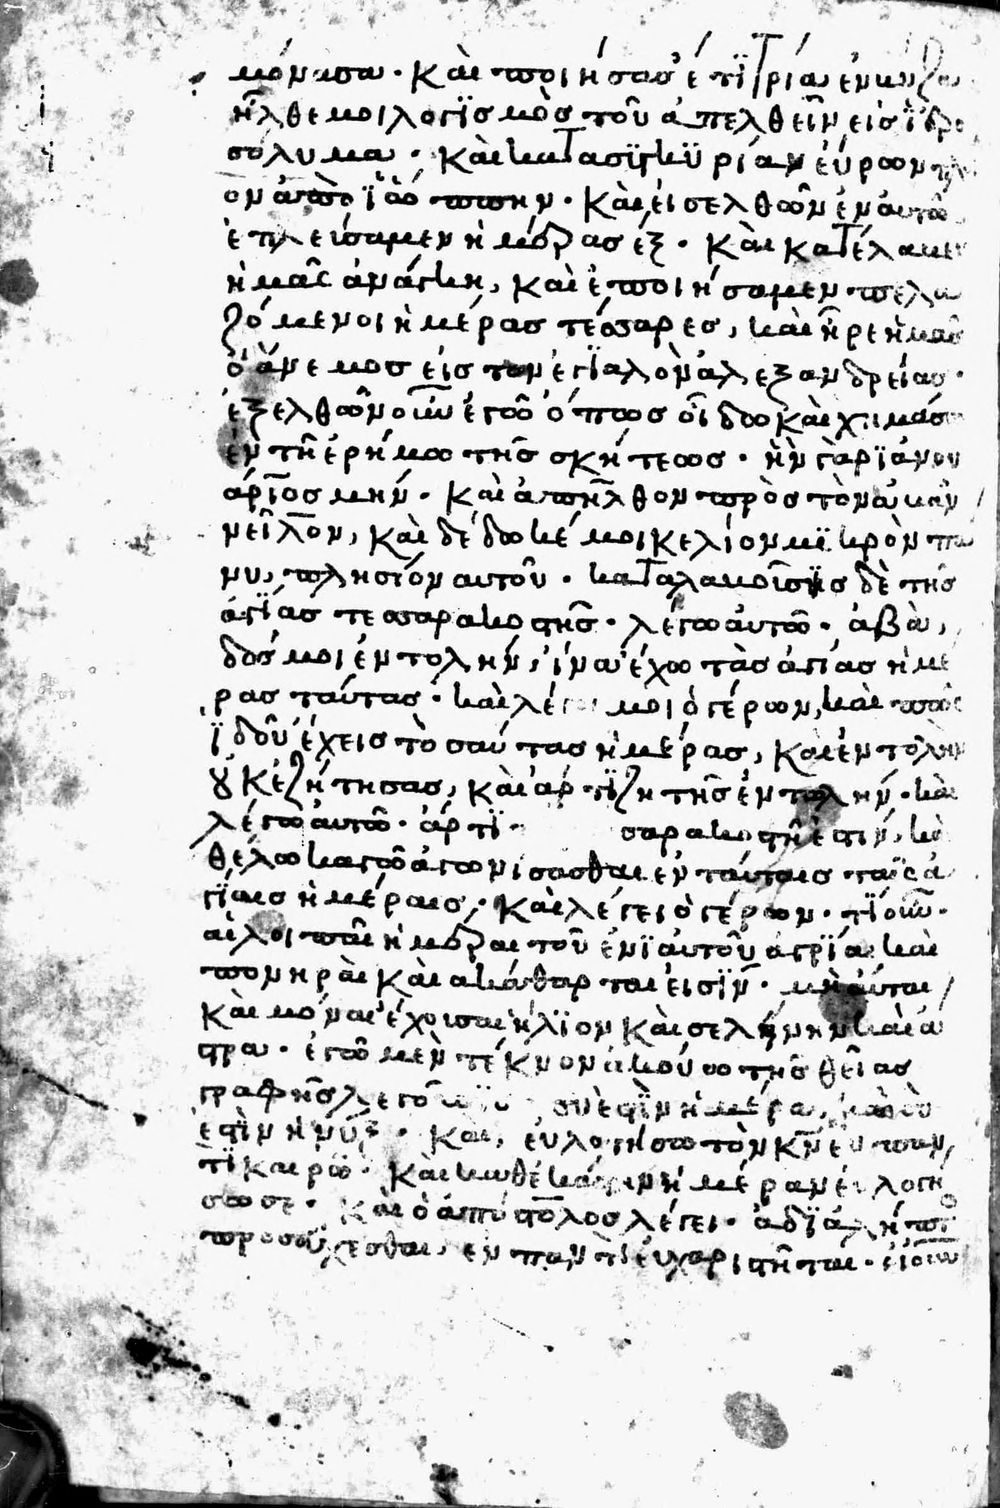 μόνασα · καὶ ποιήσας ἔτι τρία ἐν
ἦλθε μοι λογϊσμὸς τοῦ ἀπελθεῖν εἰς ϊερο
σόλυμα · καὶ κατασϊγκϋρίαν εὕρων
ον ἀπὸ ϊόππην · καὶ εἰσελθὼν ἐν αυτῶ
ἐπλεύσαμεν ἡμέρας ἕξ · καὶ κατέλαβεν
ἡμᾶς ἀνάγκη, καὶ ἐποιήσαμεν πελα
ζόμενοι ἡμέρας τέσσαρες, καὶ ἦρε ἡμᾶς
ὁ ἄνεμος εἰς τὸν ἐγϊαλὸν ἀλεξανδρείας ·
ἐξελθὼν οὖν ἐγὼ ὅπως οἴδω καὶ χιμάσω
ἐν τῆ ἐρήμω τῆς σκήτεως · ἦν γὰρ ϊάνου
άριος μήν · καὶ ἀπῆλθον πρὸς τὸν ἀββᾶν
νεῖλον, καὶ δέδωκέ μοι κελίον μϊκρὸν πά
νυ, πλησίον αυτοῦ · καταλαβούσης δὲ τῆς
ἁγϊας τεσσαρακοστῆς · λέγω αὐτῶ · ἀβᾶ,
δός μοι ἐντολήν, ἵνα ἔχω τὰς ἁγίας ἡμέ
ρας ταύτας · καὶ λέγει μοι ὁ γέρων, καὶ πῶς
ϊδοῦ ἔχεις τὸ σαύτας ἡμέρας, καὶ ἐντολὴν
οὐκ ἐζήτησας, καὶ ἀρτϊ ζητῆς ἐντολήν · καὶ
λέγω αὐτῶ · ἄρτϊ · σαρακοστῆ ἐστίν, καὶ
θέλω καγὼ ἀγωνίσασθαι ἐν ταύταις ταῖς ἁ
γϊαις ἡμέραις · καὶ λέγει ὁ γέρων · τϊ οὖν ·
αἱ λοιπαὶ ἡμέραι τοῦ ἐνϊαυτοῦ ἀγρϊαι καὶ
πονηραὶ καὶ ακάθαρται εἰσϊν · μὴ αὗται
καὶ μόναι ἔχουσαι ἥλϊον καὶ σελήνην καὶ ἄ
στρα · ἐγὼ μὲν τέκνον ἀκούω τῆς θείας
γραφῆς λεγού σὺ ἐστϊν ἡμέρα, καὶ σὺ
ἐστϊν ἡ νύξ · καὶ, εὐλογήσω τὸν κν ἐν παν
τϊ καιρῶ · καὶ καθέκάστην ἡμέραν εὐλογή
σω σε · καὶ ὁ ἀπόστολος λέγει · ἀδϊαλήπτ
προσεύχεσθαι, ἐν παντὶ εὐχαριστῆται · εἰ οὖν